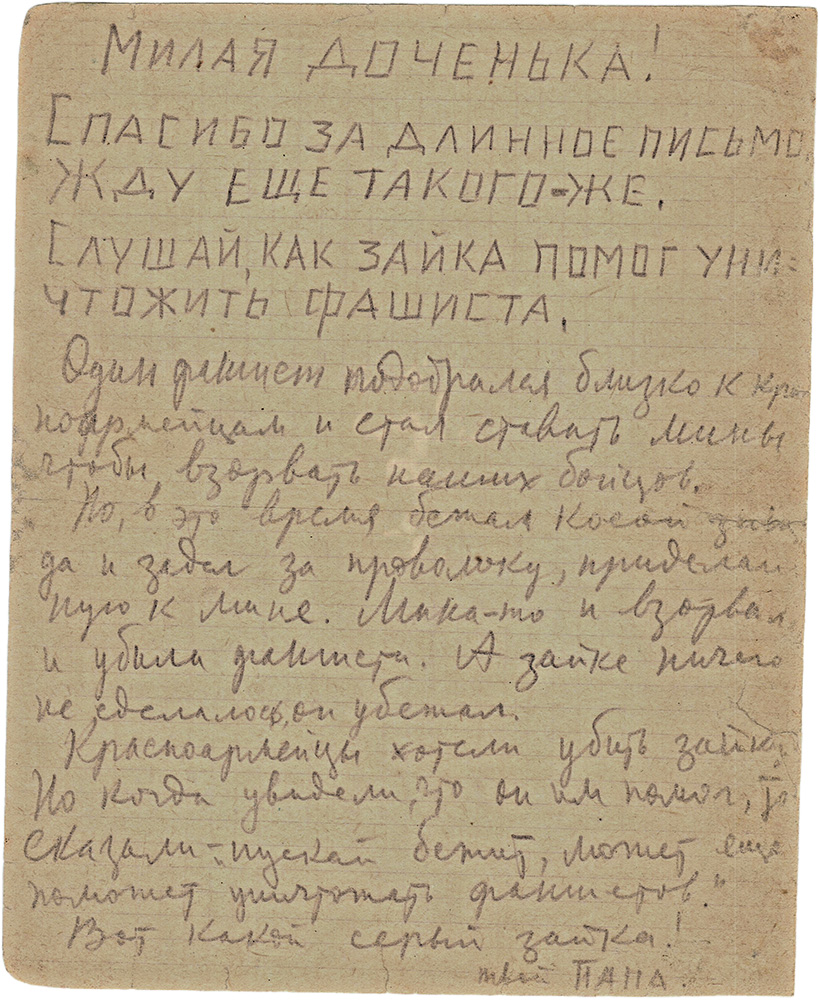 Милая доченька!
Спасибо за длинное письмо,
жду еще такого-же.
Слушай, как зайка помог уни-
чтожить фашиста.
Один фашист подобрался близко к крас
ноармейцам и стал ставить мины
чтобы взорвать наших бойцов.
Но, в это время бежал косой
да и задел за проволоку, приделан
ную к мине. Мина-то и взорвал
и убила фашиста. А зайке ничего
не сделалось, он убежал.
Красноармейцы хотели убить зайку.
Но когда увидели, что он им помог, то
сказали: "пускай бежит, может еще
поможет уничтожать фашистов."
Вот какой серый зайка!
твой ПАПА.